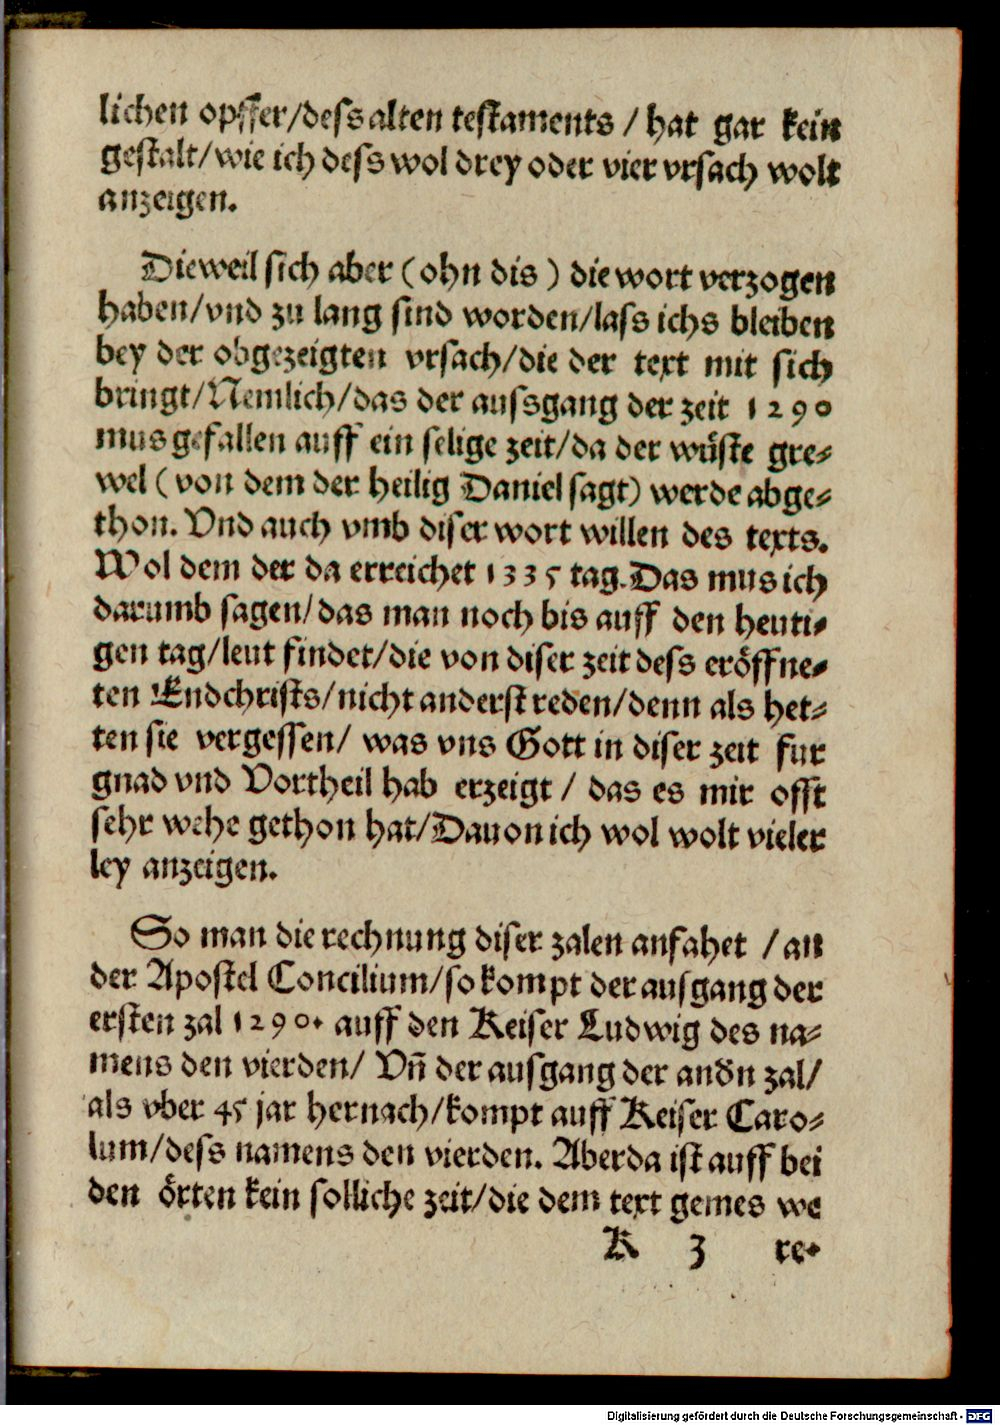 lichen opffer/dess alten testaments / hat gar kein
gestalt/wie ich dess wol drey oder vier vrsach wolt
anzeigen.
Dieweil sich aber (ohn dis) die wort verzogen
haben/vnd zu lang sind worden/lass ichs bleiben
bey der obgezeigten vrsach/die der text mit sich
bringt/Nemlich/das der aussgang der zeit 1290
mus gefallen auff ein selige zeit/da der wüste gre-
wel (von dem der heilig Daniel sagt) werde abge-
thon. Vnd auch vmb diser wort willen des texts.
Wol dem der da erreichet 1335 tag. Das mus ich
darumb sagen/das man noch bis auff den heuti-
gen tag/leut findet/die von diser zeit dess eröffne-
ten Endchrists/nicht anderst reden/denn als het-
ten sie vergessen/ was vns Gott in diser zeit fur
gnad vnd Vortheil hab erzeigt / das es mir offt
sehr wehe gethon hat/Dauon ich wol wolt vieler
ley anzeigen.
So man die rechnung diser zalen anfahet /an
der Apostel Concilium/so kompt der ausgang der
ersten zal 1290. auff den Keiser Ludwig des na-
mens den vierden/ Vñ der ausgang der andn zal/
als vber 45 jar hernach/kompt auff Keiser Caro-
lum/dess namens den vierden. Aber da ist auff bei
den örten kein solliche zeit/die dem text gemes we
K 3 re-
Digitalisierung gefördert durch die Deutsche Forschungsgemeinschaft - DFG